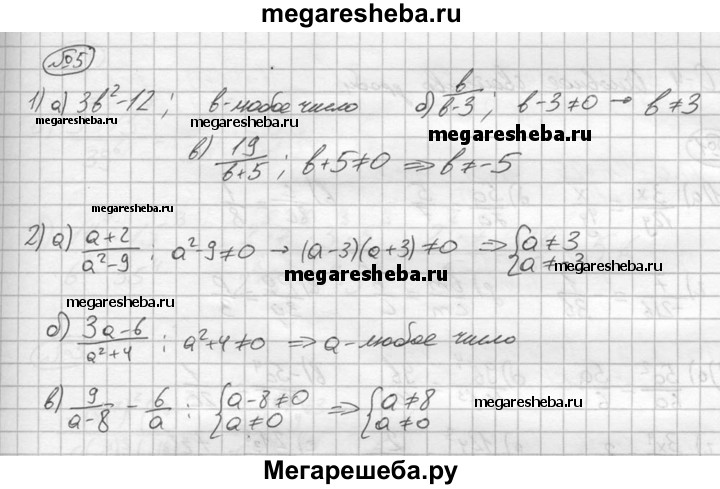 megaresheba.ru
№5
1) а) 3b²-12; b-любое число б) b/(b-3); b-3≠0 → b≠3
megaresheba.ru megaresheba.ru megaresheba.ru
megaresheba.ru
в) 19/(b+5); b+5≠0 ⇒ b≠-5
megaresheba.ru
2) а) (a+2)/(a²-9); a²-9≠0 → (a-3)(a+3)≠0 ⇒ { a≠3 a≠-3
megaresheba.ru megaresheba.ru
megaresheba.ru
б) (3a-6)/(a²+4); a²+4≠0 ⇒ a-любое число
в) 9/(a-8) - 6/a; { a-8≠0 a≠0 ⇒ { a≠8 a≠0
megaresheba.ru
megaresheba.ru
Мегарешеба.ру